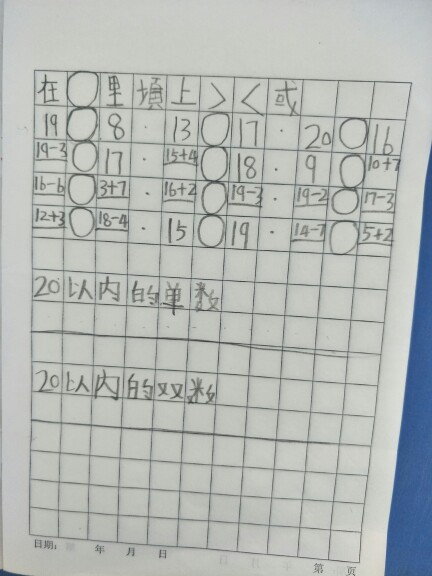 在○里填上＞＜或
19○8 · 13○17 · 20○16
19-3○17 · 15+4○18 · 9○10+7
16-6○3+7 · 16+2○19-3 · 19-2○17-3
12+3○18-4 · 15○19 · 14-7○5+2
20以内的单数
20以内的双数
日期: 年 月 日 第 页